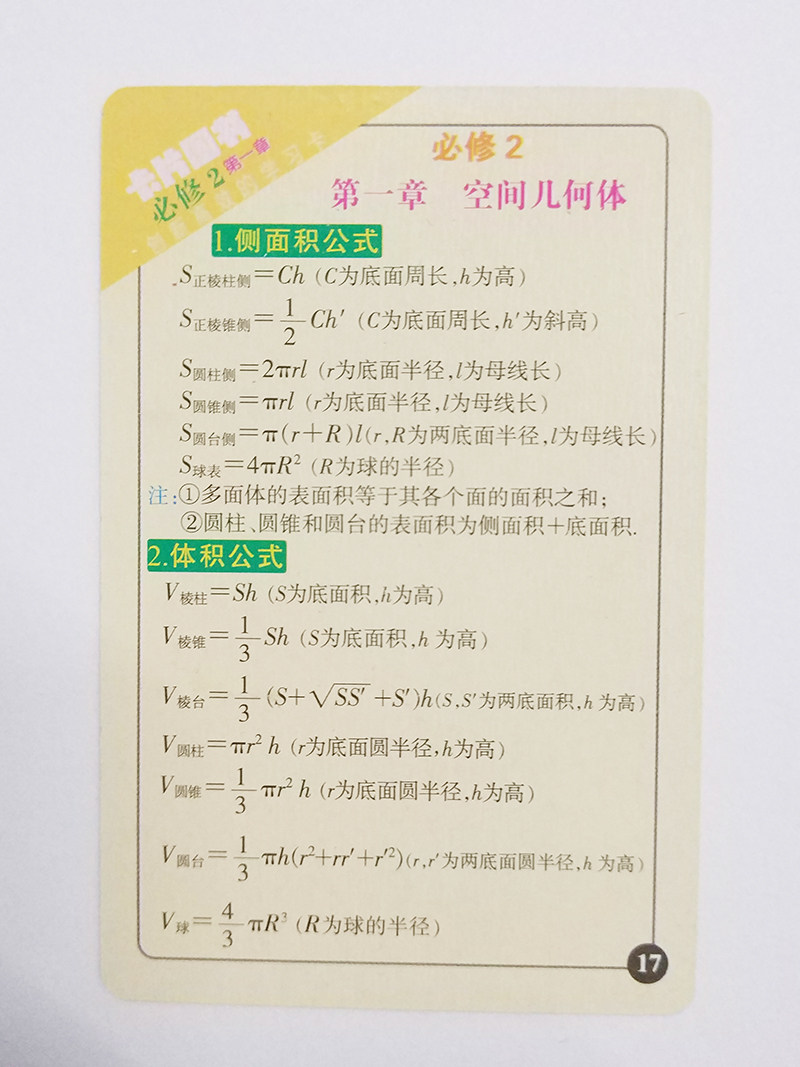 卡片图书
必修2 第一章
必修2
第一章 空间几何体
1.侧面积公式
S正棱柱侧=Ch (C为底面周长,h为高)
S正棱锥侧=1/2 Ch′ (C为底面周长,h′为斜高)
S圆柱侧=2πrl (r为底面半径,l为母线长)
S圆锥侧=πrl (r为底面半径,l为母线长)
S圆台侧=π(r+R)l(r,R为两底面半径,l为母线长)
S球表=4πR² (R为球的半径)
注:①多面体的表面积等于其各个面的面积之和;
②圆柱、圆锥和圆台的表面积为侧面积+底面积.
2.体积公式
V棱柱=Sh (S为底面积,h为高)
V棱锥=1/3 Sh (S为底面积,h为高)
V棱台=1/3 (S+√SS′+S′)h(S,S′为两底面积,h为高)
V圆柱=πr²h (r为底面圆半径,h为高)
V圆锥=1/3 πr²h (r为底面圆半径,h为高)
V圆台=1/3 πh(r²+rr′+r′²)(r,r′为两底面圆半径,h为高)
V球=4/3 πR³ (R为球的半径)
17